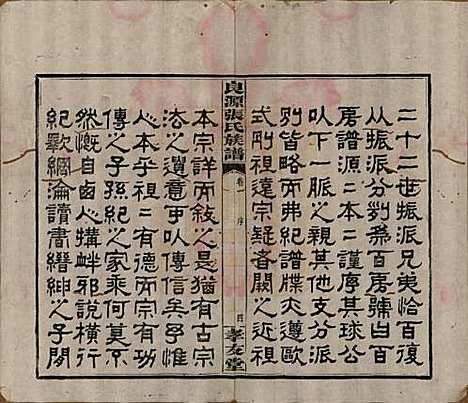 二十二世振派兄夷恰百復
从振派分剟希百房號白百
房譜源二本二謹序其球公
以下一脈之親其他支分派
別皆略而弗紀譜牒夫遵歐
式剛祖遠宗疑者闕之近祖
良源張氏族譜
卷 序
四 孝友堂
本宗詳而敘之是猶有古宗
法之遺意中以傳信吳乎惟
人本乎祖二有德而宗有功
傳之子孫紀之家乘何莫不
然慨自鹵人搆衅邪說橫行
紀歝綱淪讀書縉紳之子閱